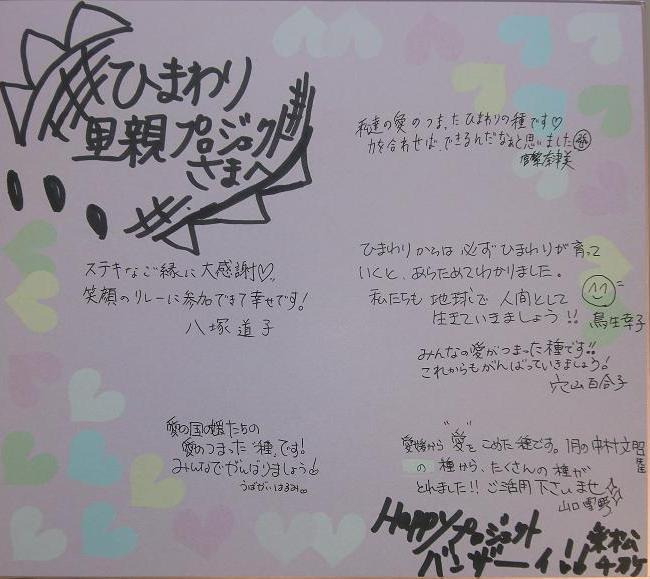 ひまわり
里親プロジェクト
さまへ
私達の愛のつまったひまわりの種です♡
力を合わせば、できるんだなぁと思いました
奈津美
ステキなご縁に大感謝♡
笑顔のリレーに参加できて幸せです!
八塚道子
ひまわりからは必ずひまわりが育って
いくと、あらためてわかりました。
私たちも地球で人間として
生きていきましょう!!
鳥生幸子
みんなの愛がつまった種です!!
これからもがんばっていきましょう!
穴山百合子
愛の国の媛たちの
愛のつまった種です!
みんなでがんばりましょう
うばがいはるみ
愛媛から"愛"をこめた種です。1月の中村文昭
の種から、たくさんの種が
とれました!!ご活用下さいませ
山口
Happyプロジェクト
バンザーイ!!